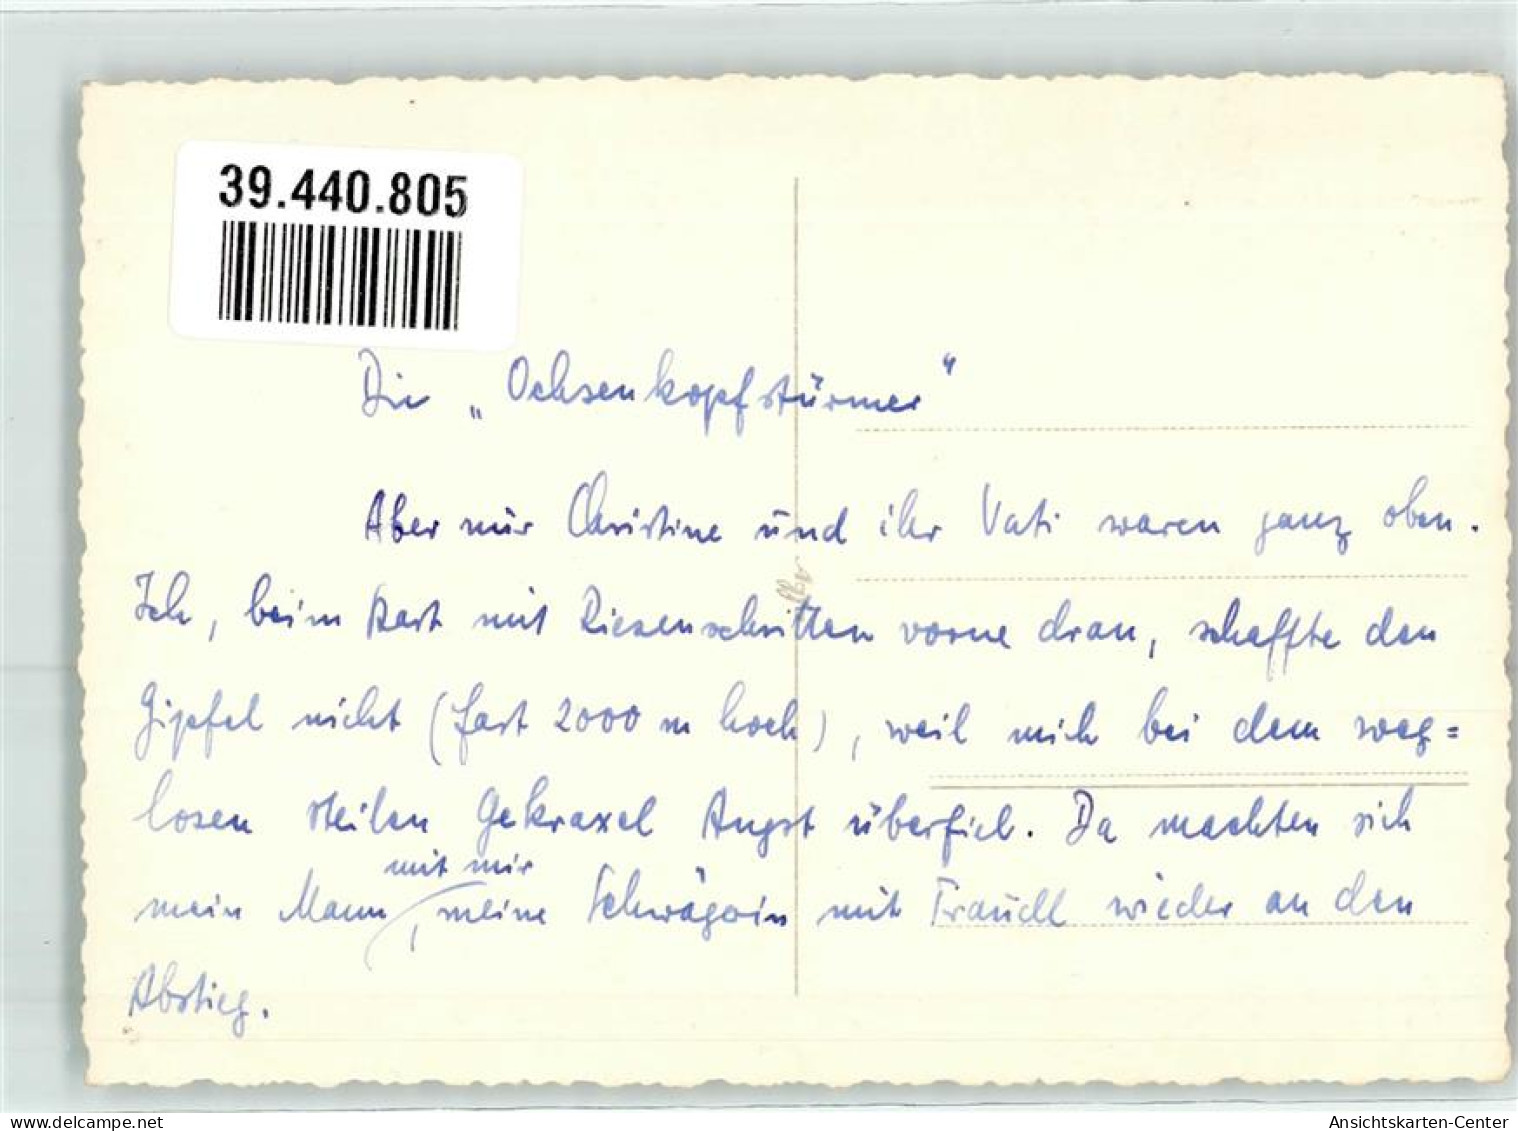 39.440.805
Die „Ochsenkopfstürmer“
Aber nur Christine und ihr Vati waren ganz oben.
Ich, beim Start mit Riesenschritten vorne dran, schaffte den
Gipfel nicht (fast 2000 m hoch), weil mich bei dem weg=
losen steilen Gekraxel Angst überfiel. Da machten sich
mit mir
mein Mann, meine Schwägerin mit Traudl wieder an den
Abstieg.
delcampe.net
Ansichtskarten-Center